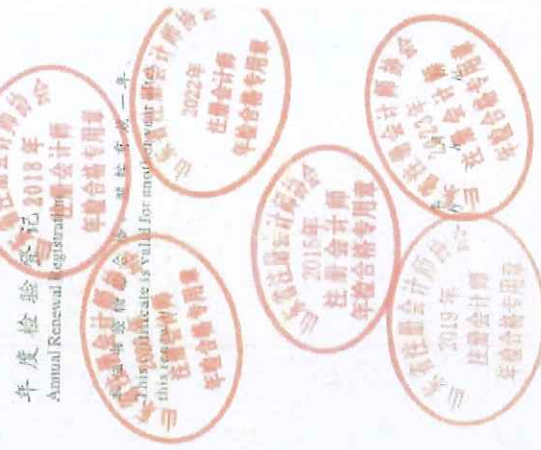 年度检验登记
Annual Renewal Registration
本证书经检验合格，继续有效一年。
This certificate is valid for another year after
this renewal.
2018年
注册会计师
年检合格专用章
2022年
注册会计师
年检合格专用章
注册会计师
年检合格专用章
省注册会计师协会
2015年
注册会计师
年检合格专用章
省注册会计师协会
注册会计师
年检合格专用章
省注册会计师协会
2019年
注册会计师
年检合格专用章